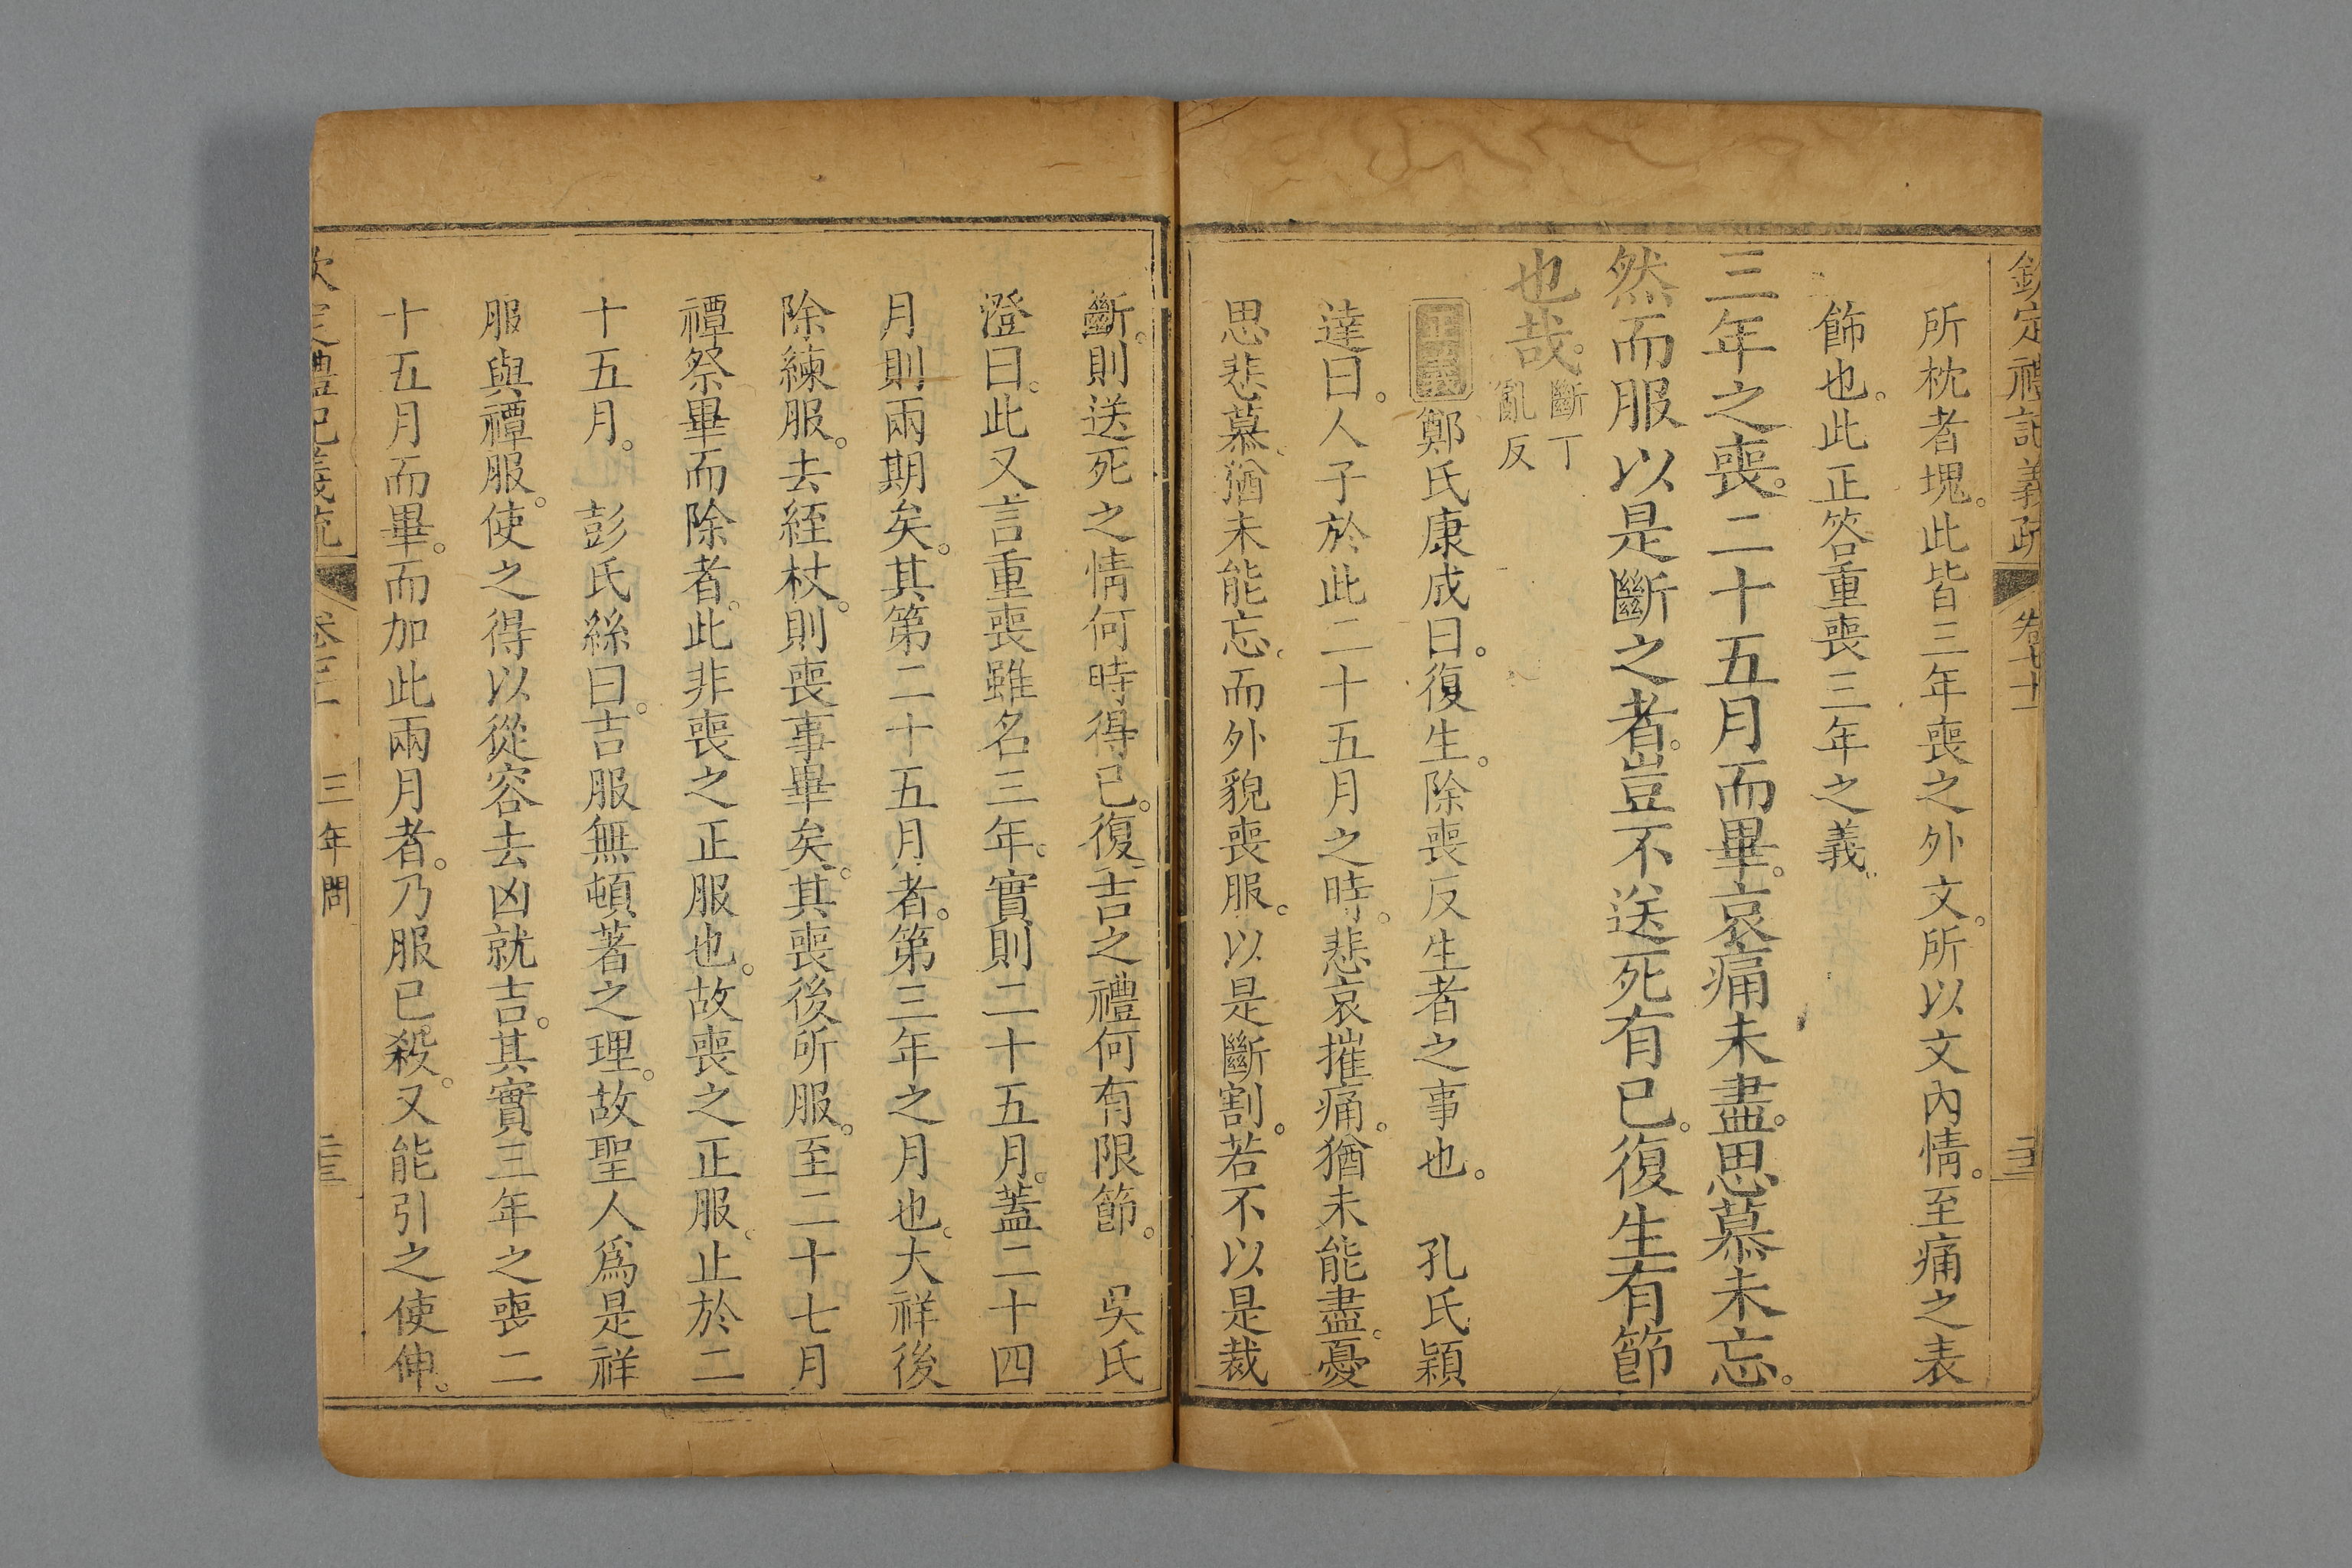 欽定禮記義疏 卷七十一
所枕者塊。此皆三年喪之外文。所以文內情。至痛之表
飾也。此正答重喪三年之義。
三年之喪。二十五月而畢。哀痛未盡。思慕未忘。
然而服以是斷之者。豈不送死有已。復生有節
也哉。斷丁亂反
正義 鄭氏康成曰。復生。除喪反生者之事也。 孔氏穎
達曰。人子於此二十五月之時。悲哀摧痛。猶未能盡。憂
思悲慕。猶未能忘。而外貌喪服。以是斷割。若不以是裁
斷。則送死之情何時得已。復吉之禮何有限節。 吳氏
澄曰。此又言重喪雖名三年。實則二十五月。蓋二十四
月則兩期矣。其第二十五月者。第三年之月也。大祥後
除練服。去絰杖。則喪事畢矣。其喪後所服。至二十七月
禫祭畢而除者。此非喪之正服也。故喪之正服。止於二
十五月。 彭氏絲曰。吉服無頓著之理。故聖人爲是祥
服與禫服。使之得以從容去凶就吉。其實三年之喪二
十五月而畢。而加此兩月者。乃服已殺。又能引之使伸。
三年問